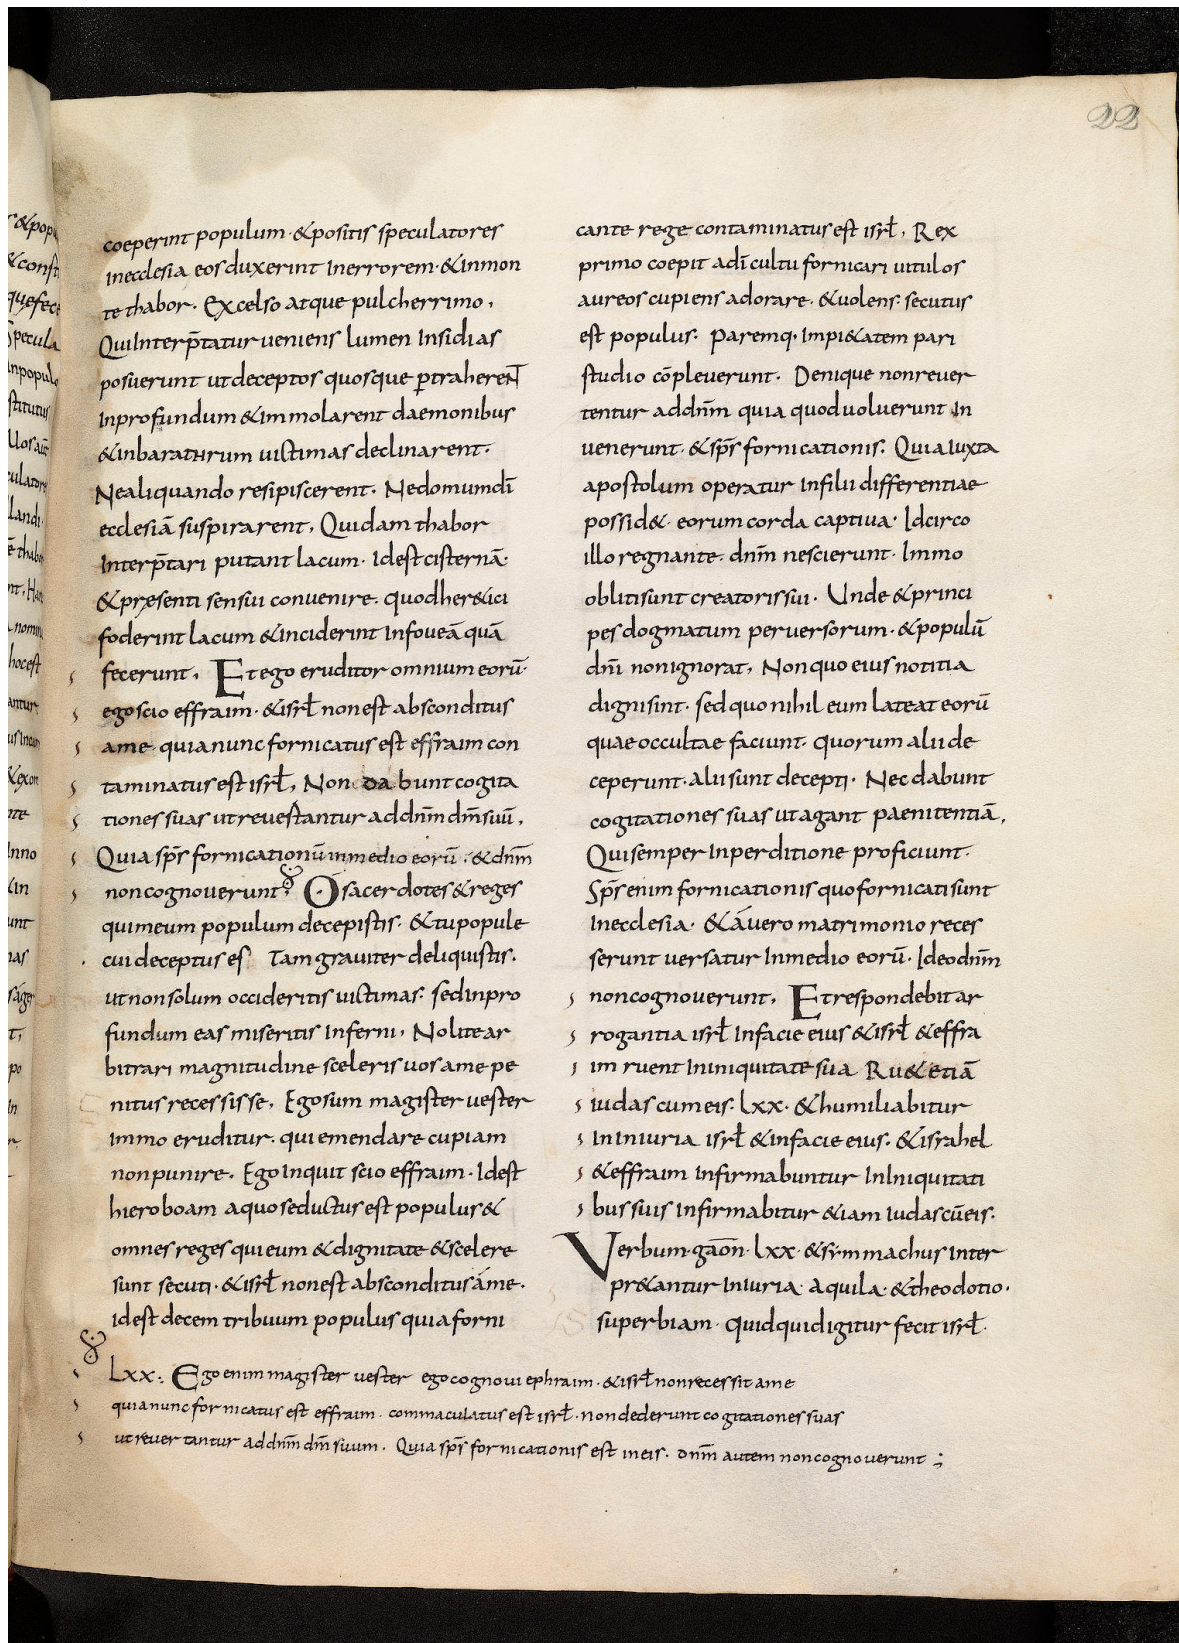 22
coeperint populum · &positis speculatores
Inecclesia eosduxerint Inerrorem · &Inmon
te thabor · Excelso atque pulcherrimo,
QuiInterp̄tatur ueniens lumen Insidias
posuerunt utdeceptos quosque ptraherenт̄
Inprofundum &Immolarent daemonibus
&Inbarathrum uictimas declinarent ·
Nealiquando resipiscerent · Nedomumdī
ecclesiā suspirarent, Quidam thabor
Interp̄tari putant lacum · Idestcisternā ·
&pręsenti sensui conuenire · quodher&ici
foderint lacum &Inciderint Infoueā quā
fecerunt, Etego eruditor omnium eorū ·
egoscio effraim · &isrł nonest absconditus
ame · quianunc fornicatus est effraim con
taminatus est isrł, Non dabunt cogita
tiones suas utreuestantur addnm̄ dm̄ suū,
Quia sps̄ fornicationū inmedio eorū · &dnm̄
noncognouerunt · Osacerdotes &reges
quimeum populum decepistis · &tupopule
cuideceptus es Tamgrauiter deliquistis ·
utnonsolum occideritis uictimas · sedinpro
fundum eas miseritis Inferni, Nolitear
bitrari magnitudine sceleris uos ame pe
nitus recessisse, Egosum magister uester
Immo eruditur · quiemendare cupiam
nonpunire · Ego Inquit scio effraim · Idest
hieroboam aquoseductus est populus &
omnes reges quieum &dignitate &scelere
sunt secuti · &isrł nonest absconditus áme ·
Idest decem tribuum populus quia forni
cante rege contaminatus est isrł, Rex
primo coepit adī cultu fornicari uitulos
aureos cupiens adorare · &uolens · secutus
est populus · Paremq, Impi&atem pari
studio cōpleuerunt · Denique nonreuer
tentur addnm̄ quia quoduoluerunt In
uenerunt · &sps̄ fornicationis · Quia Iuxta
apostolum operatur Infilii differentiae
possid& · eorum corda captiua · Idcirco
illo regnante · dnm̄ nescierunt · Immo
oblitisunt creatorissui · Unde &princi
pes dogmatum peruersorum · &populū
dnī nonignorat, Nonquo eius notitia
dignisint · sed quo nihil eum lateat eorū
quae occultae faciunt · quorum alii de
ceperunt · alii sunt decepti · Nec dabunt
cogitationes suas utagant paenitentiā,
Quisemper Inperditione proficiunt ·
Sps̄ enim fornicationis quofornicatisunt
Inecclesia · &áuero matrimonio reces
serunt uersatur Inmedio eorū · Ideodnm̄
noncognouerunt, Etrespondebit ar
rogantia isrł Infacie eius &isrł &effra
im ruent Ininiquitate sua Ru&etiā
iudas cumeis · Lxx · &humiliabitur
InIniuria isrł &Infacie eius · &israhel
&effraim Infirmabuntur InIniquitati
bus suis Infirmabitur &iam Iudas cūeis ·
Verbum · gaōn · Lxx · &symmachus Inter
pr&antur Iniuria · aquila · &theodotio ·
superbiam · quidquidigitur fecit isrł ·
Lxx · Egoenim magister uester egocognoui ephraim · &isrł nonrecessit ame
quianunc fornicatus est effraim · commaculatus est isrł · nondederunt cogitationes suas
utreuertantur addnm̄ dm̄ suum · Quia sps̄ fornicationis est ineis · dnm̄ autem noncognouerunt ;